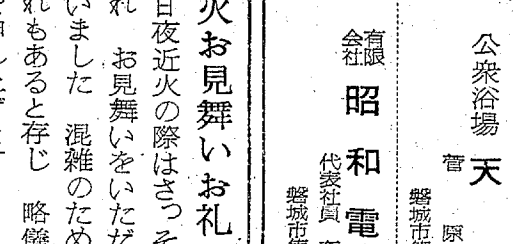 公衆浴場 天
菅 原
磐城市
有限会社 昭和電
代表社員
磐城市
火お見舞いお礼
日夜近火の際はさっそ
れ お見舞いをいただ
いました 混雑のため
れもあると存じ 略儀